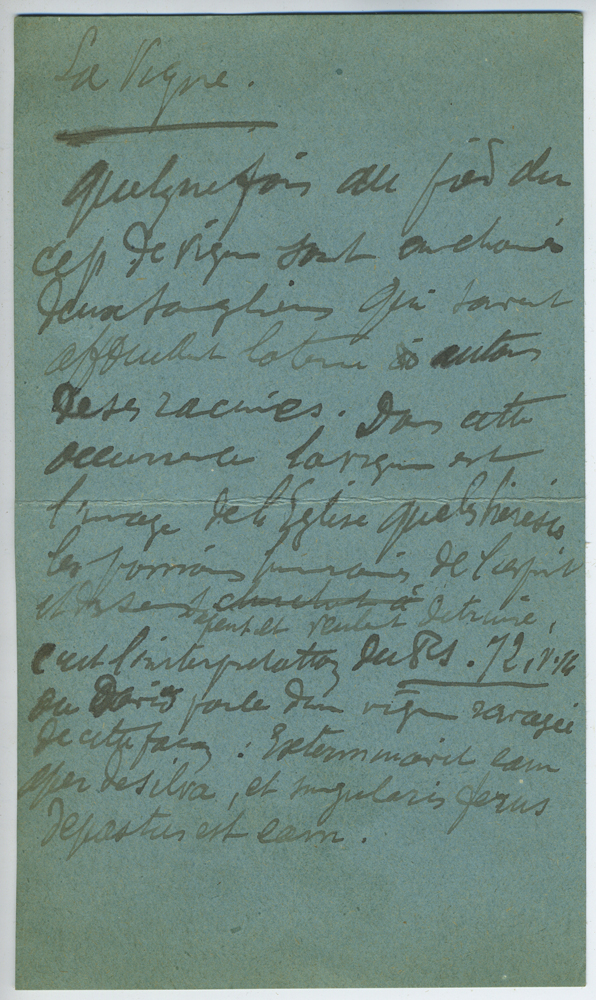 La Vigne.
Quelquefois au pied du
cep de vigne sont enchainés
deux sangliers qui
affouillent la terre autour
de ses racines. Dans cette
occurrence la vigne est
l'image de l'Eglise que les hérésies
les passions humaines de l'esprit
et des sens
et veulent détruire,
c'est l'interpretation du Ps. 72, v. 14
ou David parle d'une vigne ravagée
de cette façon : Exterminavit eam
aper de silva, et singularis ferus
depastus est eam.